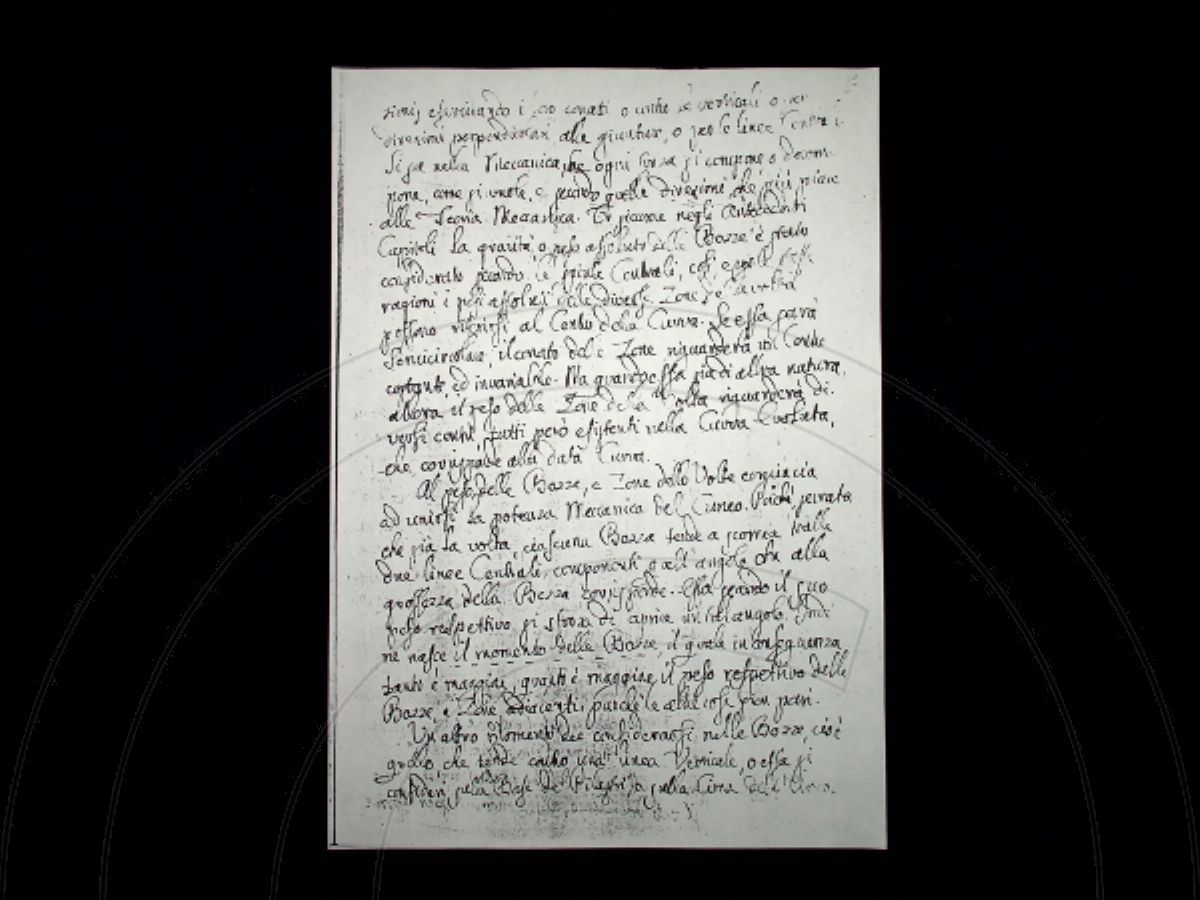 esercitando i loro conati o contro le verticali o per
direzioni perpendicolari alle giunture, o per le linee Centrali.
Si sa nella Meccanica, che ogni forza si compone, o decom-
pone, come si vuole, e secondo quelle direzioni che più piace
alla Teoria Meccanica. Or siccome negli Antecedenti
Capitoli la gravità, o peso assoluto delle Bozze è stato
considerato secondo le spinte Centrali, così e per le stesse
ragioni i pesi assoluti delle diverse Zone de la volta
possono riferirsi al Centro della Curva. Se essa sarà
Semicircolare, il conato delle Zone riguarderà un Centro
costante, ed invariabile. Ma quando essa sia di altra natura,
allora il peso delle Zone della Volta riguarderà di-
versi centri, tutti però esistenti nella Curva Evoluta,
che corrisponde alla data Curva.
Al peso delle Bozze, e Zone delle Volte comincia
ad unirsi la potenza Meccanica del Cuneo. Poiché serrata
che sia la volta, ciascuna Bozza tende a scorrere nelle
due linee Centrali, componenti quell'angolo che alla
grossezza della Bozza corrisponde. Essa secondo il suo
peso respettivo si sforza di aprire un tal angolo. Indi
ne nasce il momento delle Bozze, il quale in conseguenza
tanto è maggiore, quanto è maggiore il peso respettivo delle
Bozze, e Zone adiacenti; purché le altre cose sien pari.
Un altro Momento dee considerarsi nelle Bozze, cioè
quello che tende contro una linea Verticale, o essa si
consideri sulla Base de' Pilastri, o sulla Cima